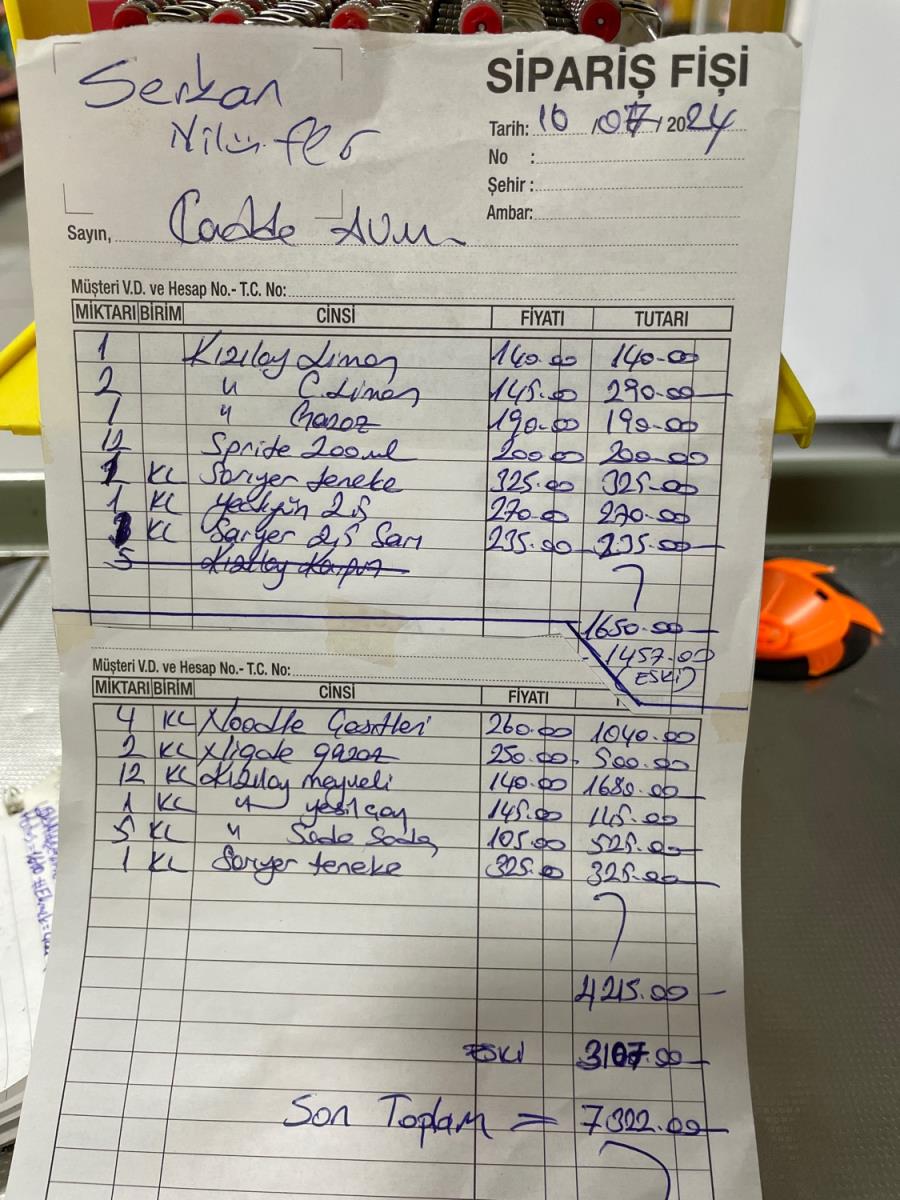 Serkan
Nilüfer
SİPARİŞ FİŞİ
Tarih: 10 /07/2024
No :
Şehir :
Ambar:
Sayın, Cadde AVM
Müşteri V.D. ve Hesap No.- T.C. No:
MİKTARI BİRİM CİNSİ FİYATI TUTARI
1 Kızılay Limon 140.00 140.00
2 " C.Limon 145.00 290.00
1 " Gazoz 190.00 190.00
12 Spride 200ml 200.00 200.00
1 KL Sarıyer teneke 325.00 325.00
1 KL yedigün 2,5 270.00 270.00
1 KL Sarıyer 2,5 Sarı 235.00 235.00
5 Kızılay Karpuz
1650.00
1457.00
(ESKİ)
Müşteri V.D. ve Hesap No.- T.C. No:
MİKTARI BİRİM CİNSİ FİYATI
4 KL Noodle Çeşitleri 260.00 1040.00
2 KL Nigde gazoz 250.00 500.00
12 KL Kızılay meyveli 140.00 1680.00
1 KL " yeşilçay 145.00 145.00
5 KL " Sade Soda 105.00 525.00
1 KL Sarıyer teneke 325.00 325.00
4215.00
ESKİ 3107.00
Son Toplam = 7322.00